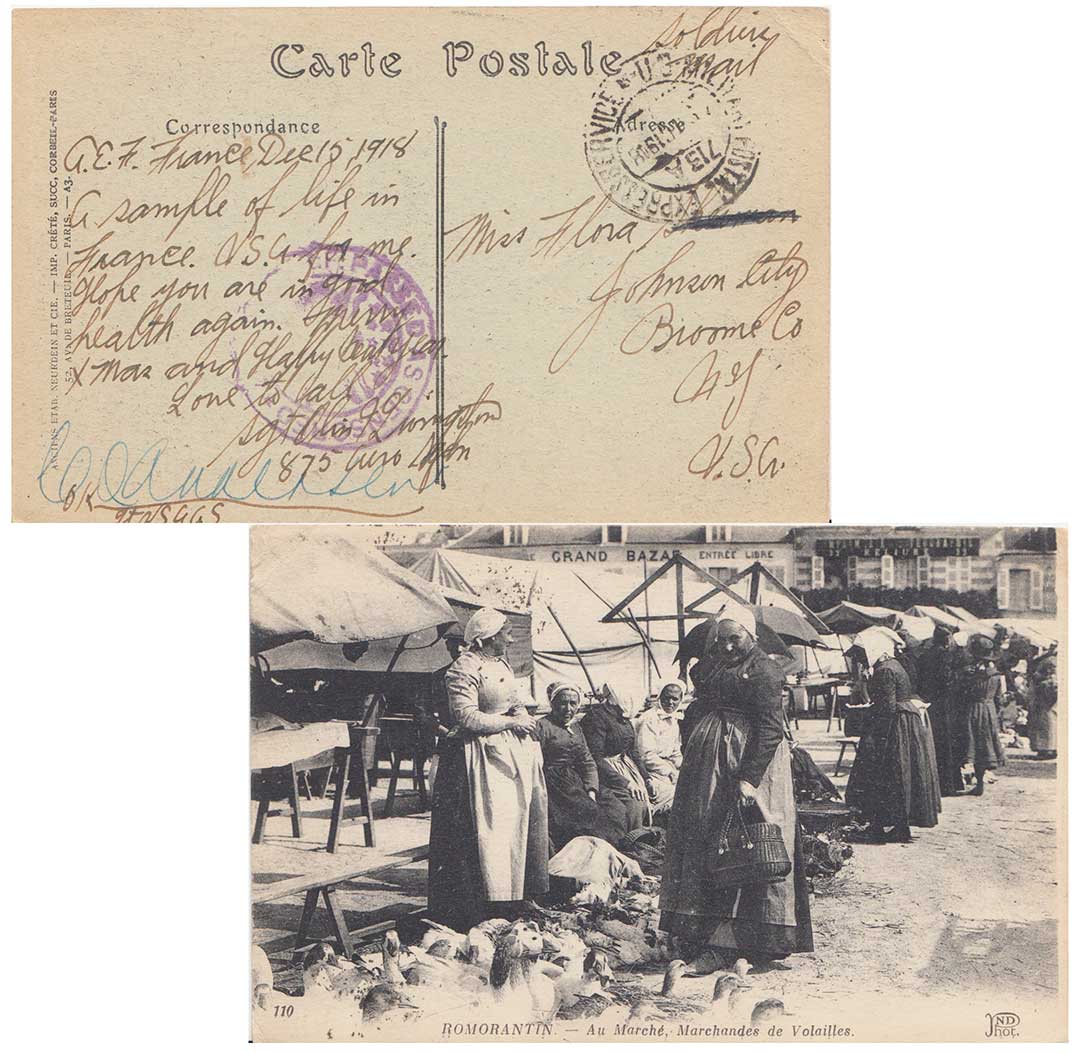 Soldiers
Mail
Carte Postale
Correspondance
Adresse
A.E.F. France, Dec 15, 1918
A sample of life in
France. U.S.A. for me.
Hope you are in good
health again. Merry
Xmas and Happy New Year
Love to all
Sgt Olin Livingston
875 Aero Sqdn
OK
Miss Flora
Johnson City
Broome Co
N.Y.
U.S.A.
MILITARY POSTAL EXPRESS SERVICE
713A
ANCIENS ETAB. NEURDEIN ET CIE. — IMP. CRÉTÉ, SUCC, CORBEIL-PARIS
52, AV. DE BRETEUIL. — PARIS. — A3.
GRAND BAZAR ENTRÉE LIBRE
110
ROMORANTIN. — Au Marché, Marchandes de Volailles.
ND
Phot.